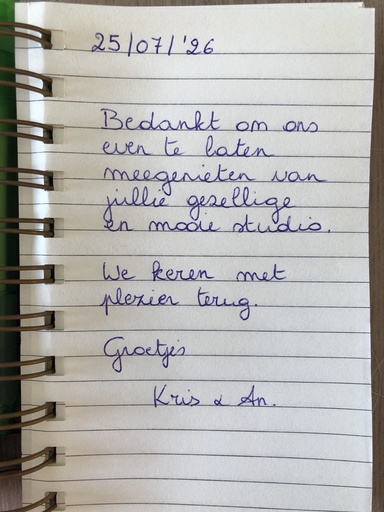 25/07/'26
Bedankt om ons
even te laten
meegenieten van
jullie gezellige
en mooie studio.
We keren met
plezier terug.
Groetjes
Kris & An.